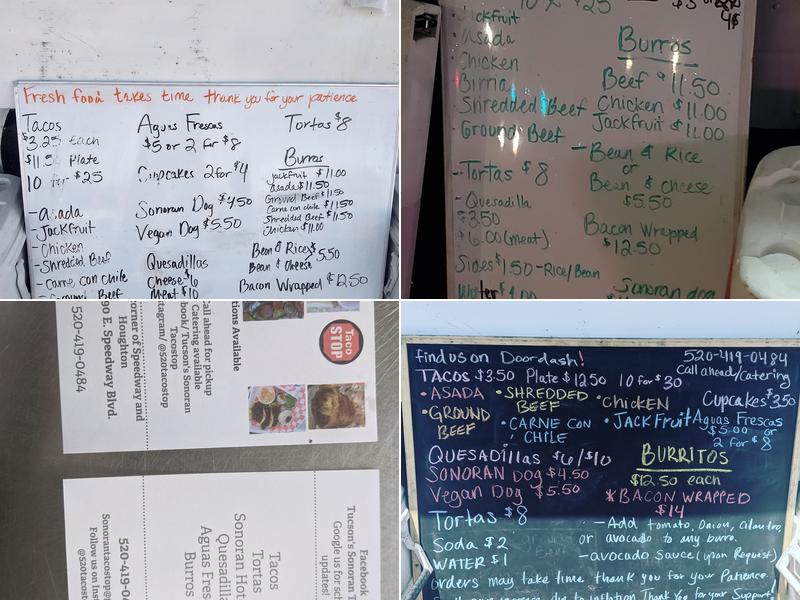 Fresh food takes time thank you for your patience
Tacos
$3.25 each
Plate
10 for $25
- Asada
- Jackfruit
- Chicken
- Shredded Beef
- carne con chile
- Ground Beef
Aguas Frescas
$5 or 2 for $8
Cupcakes 2 for $4
Sonoran Dog $4.50
Vegan Dog $5.50
Quesadillas
Cheese $6
Meat $10
Tortas $8
Burros
jackfruit $11.00
asada $11.50
Ground Beef $11.50
Carne con chile $11.50
Shredded Beef $11.50
Chicken $11.00
Bean & Rice $5.50
Bean & Cheese
Bacon Wrapped $12.50
10 x $25
Jackfruit
Asada
Chicken
Birria
Shredded Beef
Ground Beef
- Tortas $8
- Quesadilla
$3.50
$6.00 (meat)
Sides $1.50 - Rice/Bean
Water $1.00
Burros
Beef $11.50
Chicken $11.00
Jackfruit $11.00
- Bean & Rice
or
Bean & cheese
$5.50
Bacon Wrapped
$12.50
Sonoran dog
tions Available
Call ahead for pickup
Catering available
book/Tucson's Sonoran
Tacostop
tagram/ @520tacostop
Taco
STOP
corner of Speedway and
Houghton
90 E. Speedway Blvd.
520-419-0484
Facebook
Tucson's Sonoran T
Google us for sc
updates!
Tacos
Tortas
Sonoran Hot
Quesadill
Aguas Fres
Burros
520-419-0
Sonorantacostop@
Follow us on Inst
@520tacost
find us on Doordash!
520-419-0484
Call ahead/Catering
TACOS $3.50 Plate $12.50 10 for $30
• ASADA
• GROUND
BEEF
• SHREDDED
BEEF
• CARNE CON
CHILE
• CHICKEN
• JACKFruit
Cupcakes $3.50
Aguas Frescas
$5.00 or
2 for $8
QUESADIllas $6/$10
SONORAN DOG $4.50
Vegan Dog $5.50
Tortas $8
Soda $2
WATER $1
BURRITOS
$12.50 each
*BACON WRAPPED
$14
- Add tomato, Onion, cilantro,
or avocado to any burro.
- avocado sauce (upon Request)
orders may take time thank you for your Patience.
due to inflation Thank You for your Support!